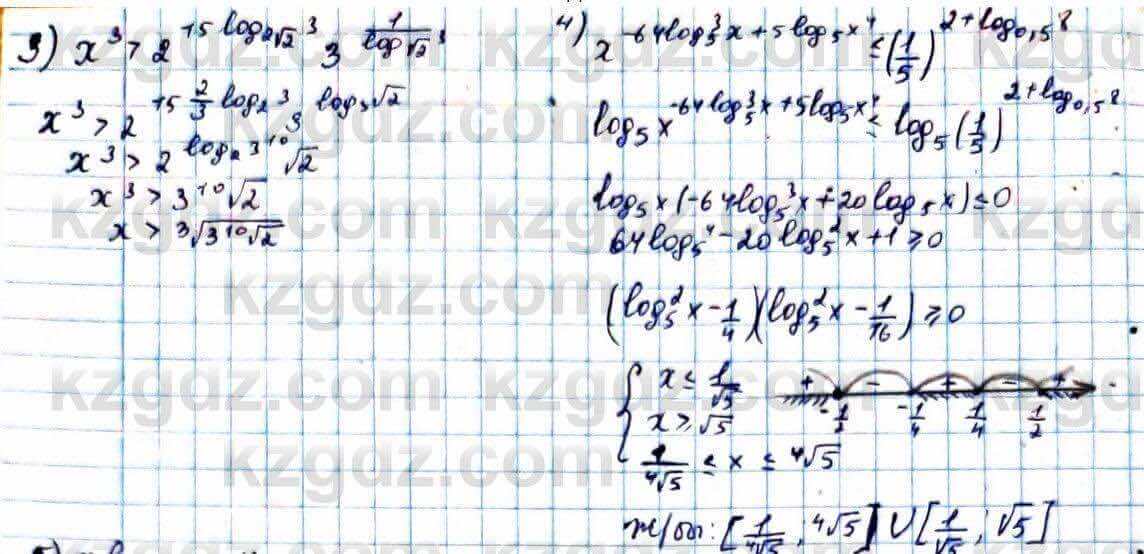 3) x³ > 2^(15 log_(2√2) 3) 3^(1/log_(√2) 3)
x³ > 2^(15 2/3 log₂ 3) 3^(log₃ √2)
x³ > 2^(log₂ 3¹⁰) √2
x³ > 3¹⁰√2
x > ³√(3¹⁰√2)
4) x^(-64log₅³x + 5log₅x⁴) ≤ (1/5)^(2+log_(0,5) 8)
log₅x^(-64log₅³x + 5log₅x⁴) ≤ log₅(1/5)^(2+log_(0,5) 8)
log₅x(-64log₅³x + 20log₅x) ≤ 0
64log₅⁴ - 20log₅²x + 1 ≥ 0
(log₅²x - 1/4)(log₅²x - 1/16) ≥ 0
{ x ≤ 1/√5
x ≥ √5
1/⁴√5 ≤ x ≤ ⁴√5
+ - + - +
-1/2 -1/4 1/4 1/2
ж/бы: [1/⁴√5 ; ⁴√5] ∪ [1/√5 ; √5]
kzgdz.com
kzgdz.com
kzgdz.com
kzgdz.com
kzgdz.com